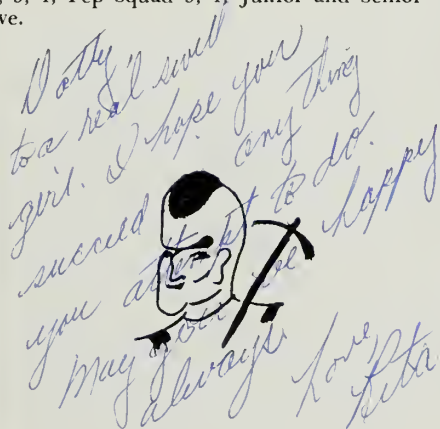 , 3, 4, Pep Squad 3, 4, Junior and Senior
ve.
Dotty
to a real swell
girl. I hope you
succeed any thing
you attempt to do.
May you be happy
always.
Love,
Rita